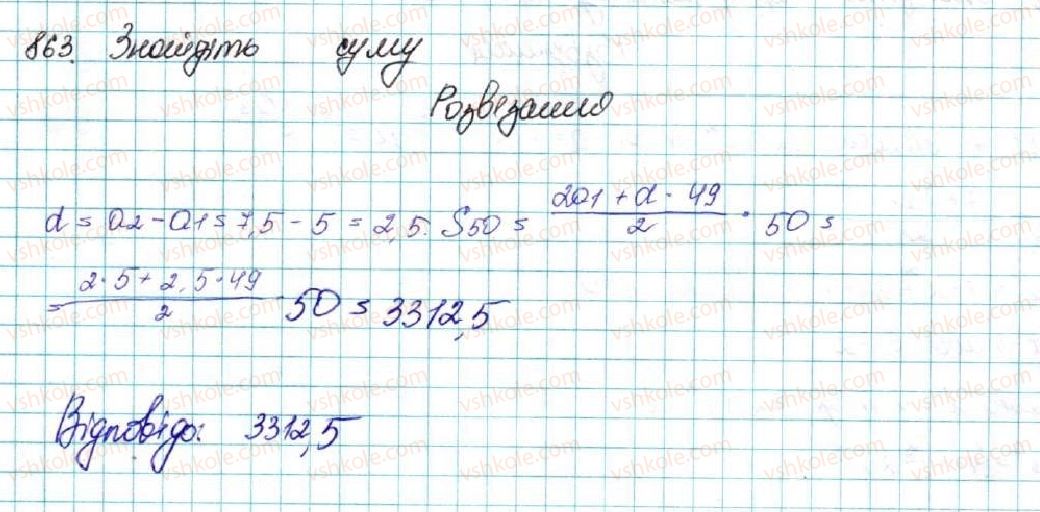 863. Знайдіть суму
Розв'язання
d = a2 - a1 = 7,5 - 5 = 2,5. S50 = (2a1 + d · 49)/2 · 50 =
= (2 · 5 + 2,5 · 49)/2 · 50 = 3312,5
Відповідь: 3312,5